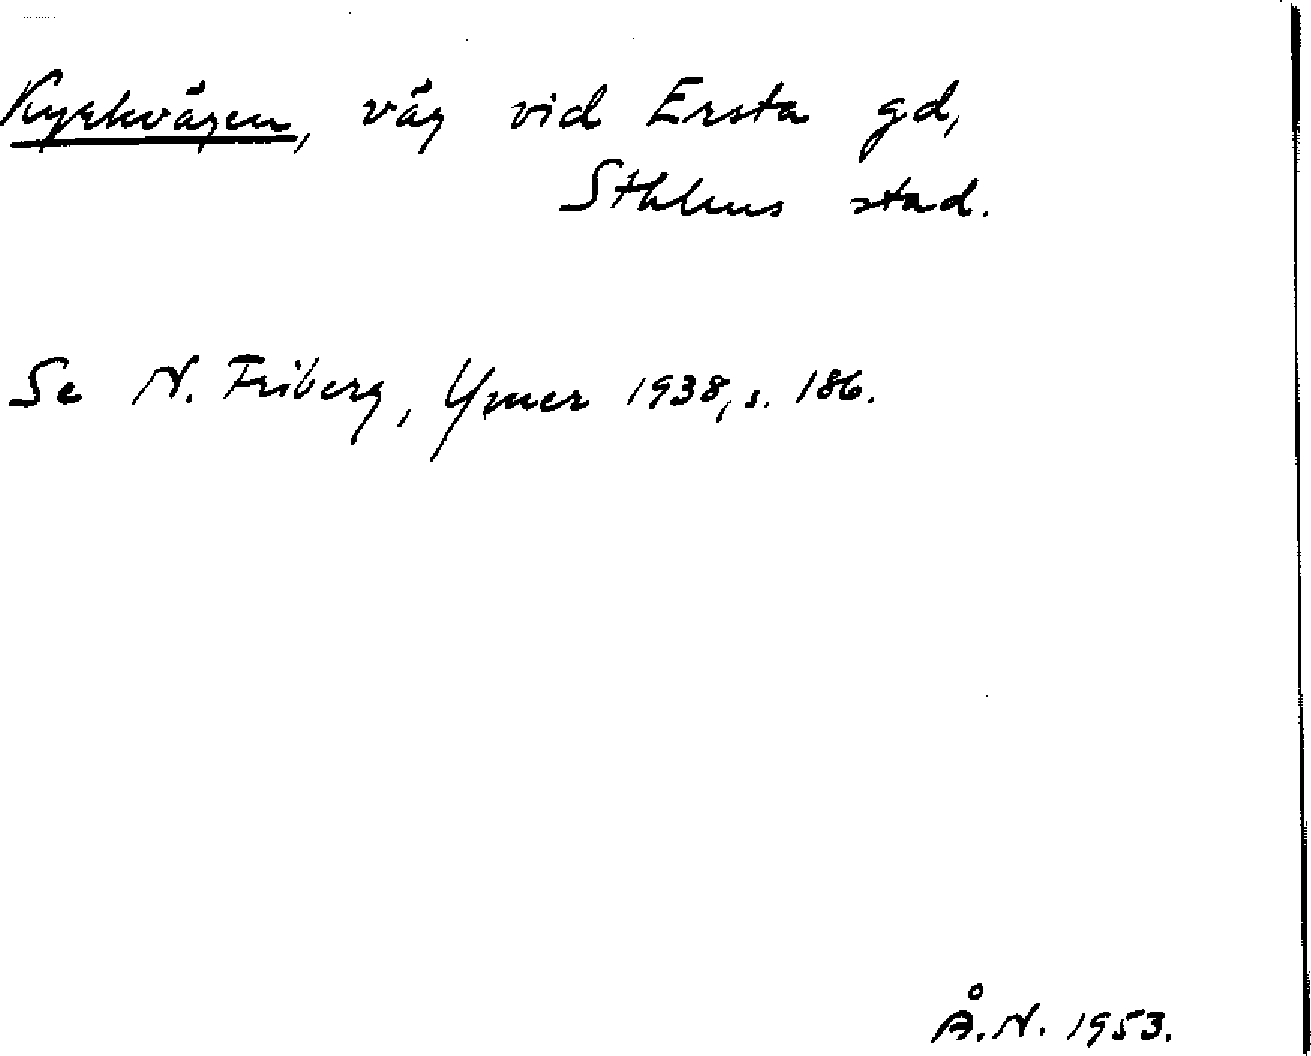 Kyrkvägen, väg vid Ersta gd,
Sthlms stad.
Se N. Friberg, Ymer 1938, s. 186.
Å.N. 1953.